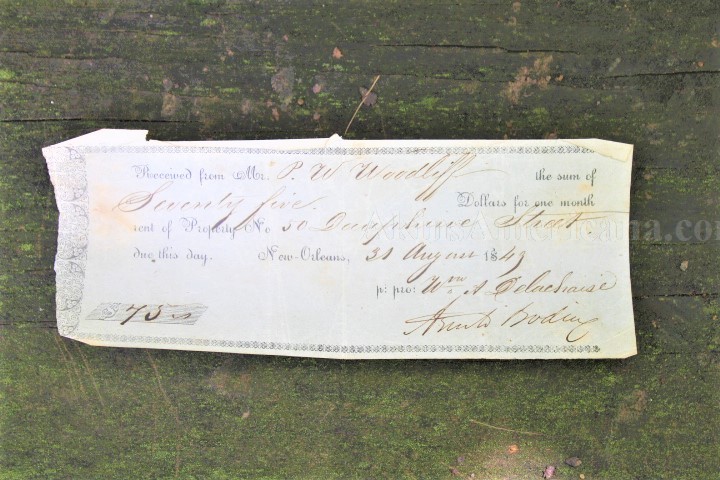 Received from Mr. P. W. Woodliff the sum of
Seventy five Dollars for one month
rent of Property No 50 Dauphine Street
due this day. New-Orleans, 31 August 1849
p: pro: Wm A Delachaise
$ 75